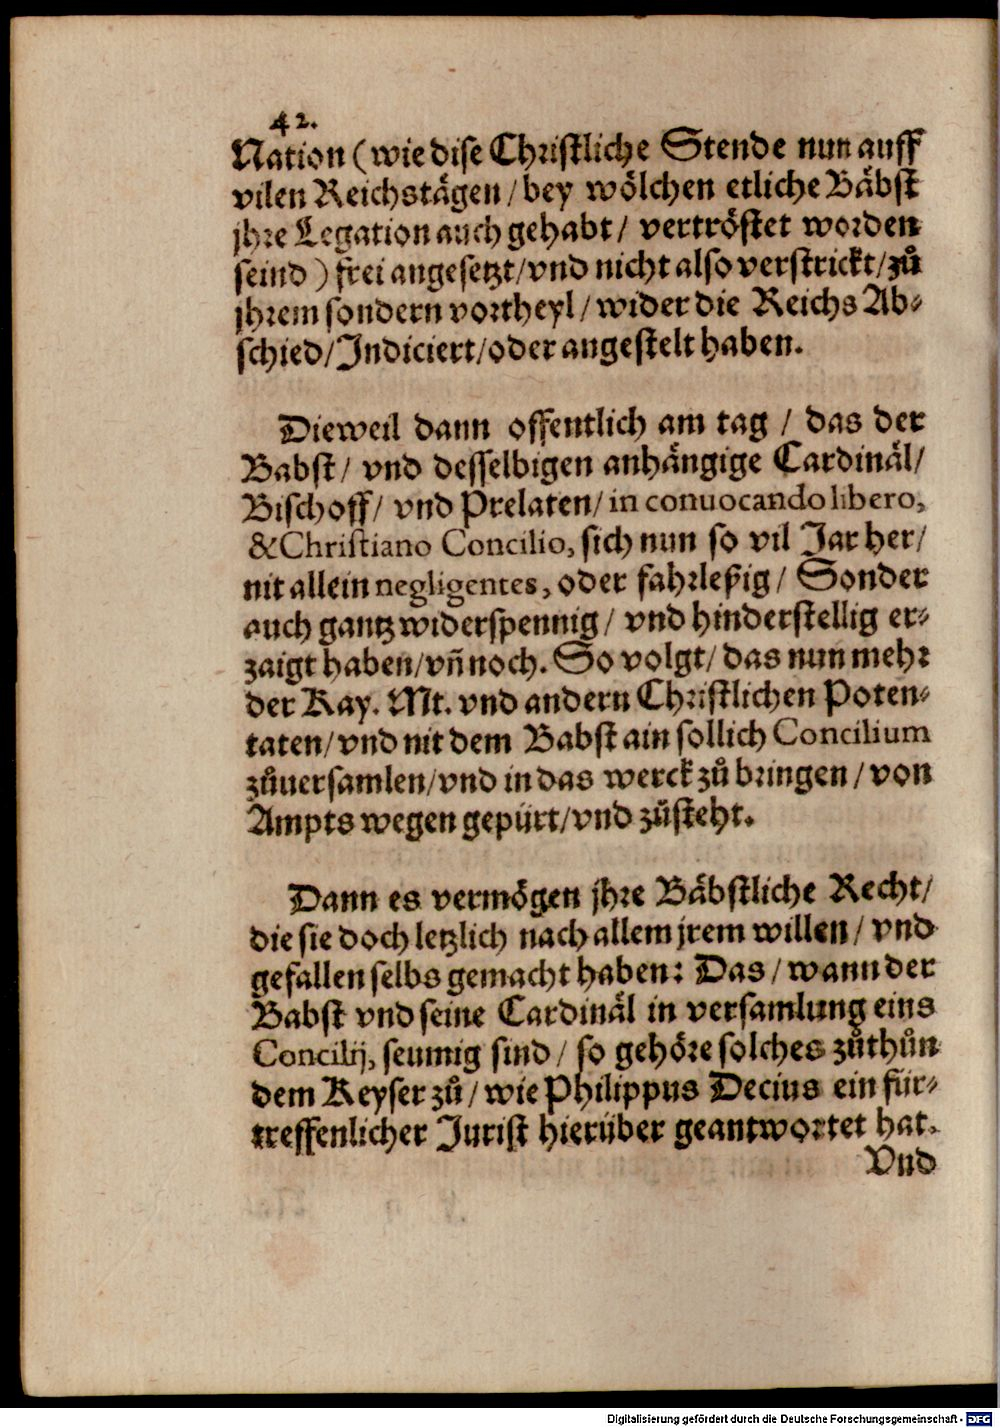 42.
Nation (wie dise Christliche Stende nun auff
vilen Reichstägen / bey wölchen etliche Bäbst
jhre Legation auch gehabt / vertröstet worden
seind ) frei angesetzt / vnd nicht also verstrickt / zů
jhrem sondern vortheyl / wider die Reichs Ab-
schied / Indiciert / oder angestelt haben.
Dieweil dann offentlich am tag / das der
Babst / vnd desselbigen anhängige Cardinäl /
Bischoff / vnd Prelaten / in conuocando libero,
& Christiano Concilio, sich nun so vil Jar her /
nit allein negligentes, oder fahrleßig / Sonder
auch gantz widerspennig / vnd hinderstellig er-
zaigt haben / vñ noch. So volgt / das nun mehr
der Kay. Mt. vnd andern Christlichen Poten-
taten / vnd nit dem Babst ain sollich Concilium
zůuersamlen / vnd in das werck zů bringen / von
Ampts wegen gepürt / vnd zůsteht.
Dann es vermögen jhre Bäbstliche Recht /
die sie doch letzlich nach allem jrem willen / vnd
gefallen selbs gemacht haben: Das / wann der
Babst vnd seine Cardinäl in versamlung eins
Concilij, seumig sind / so gehöre solches zůthůn
dem Keyser zů / wie Philippus Decius ein für-
treffenlicher Jurist hierüber geantwortet hat.
Vnd
Digitalisierung gefördert durch die Deutsche Forschungsgemeinschaft - DFG